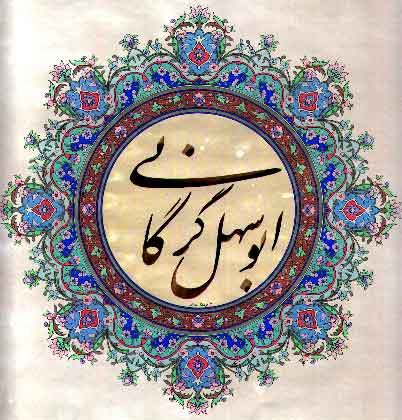 ابوسهل گرگانی